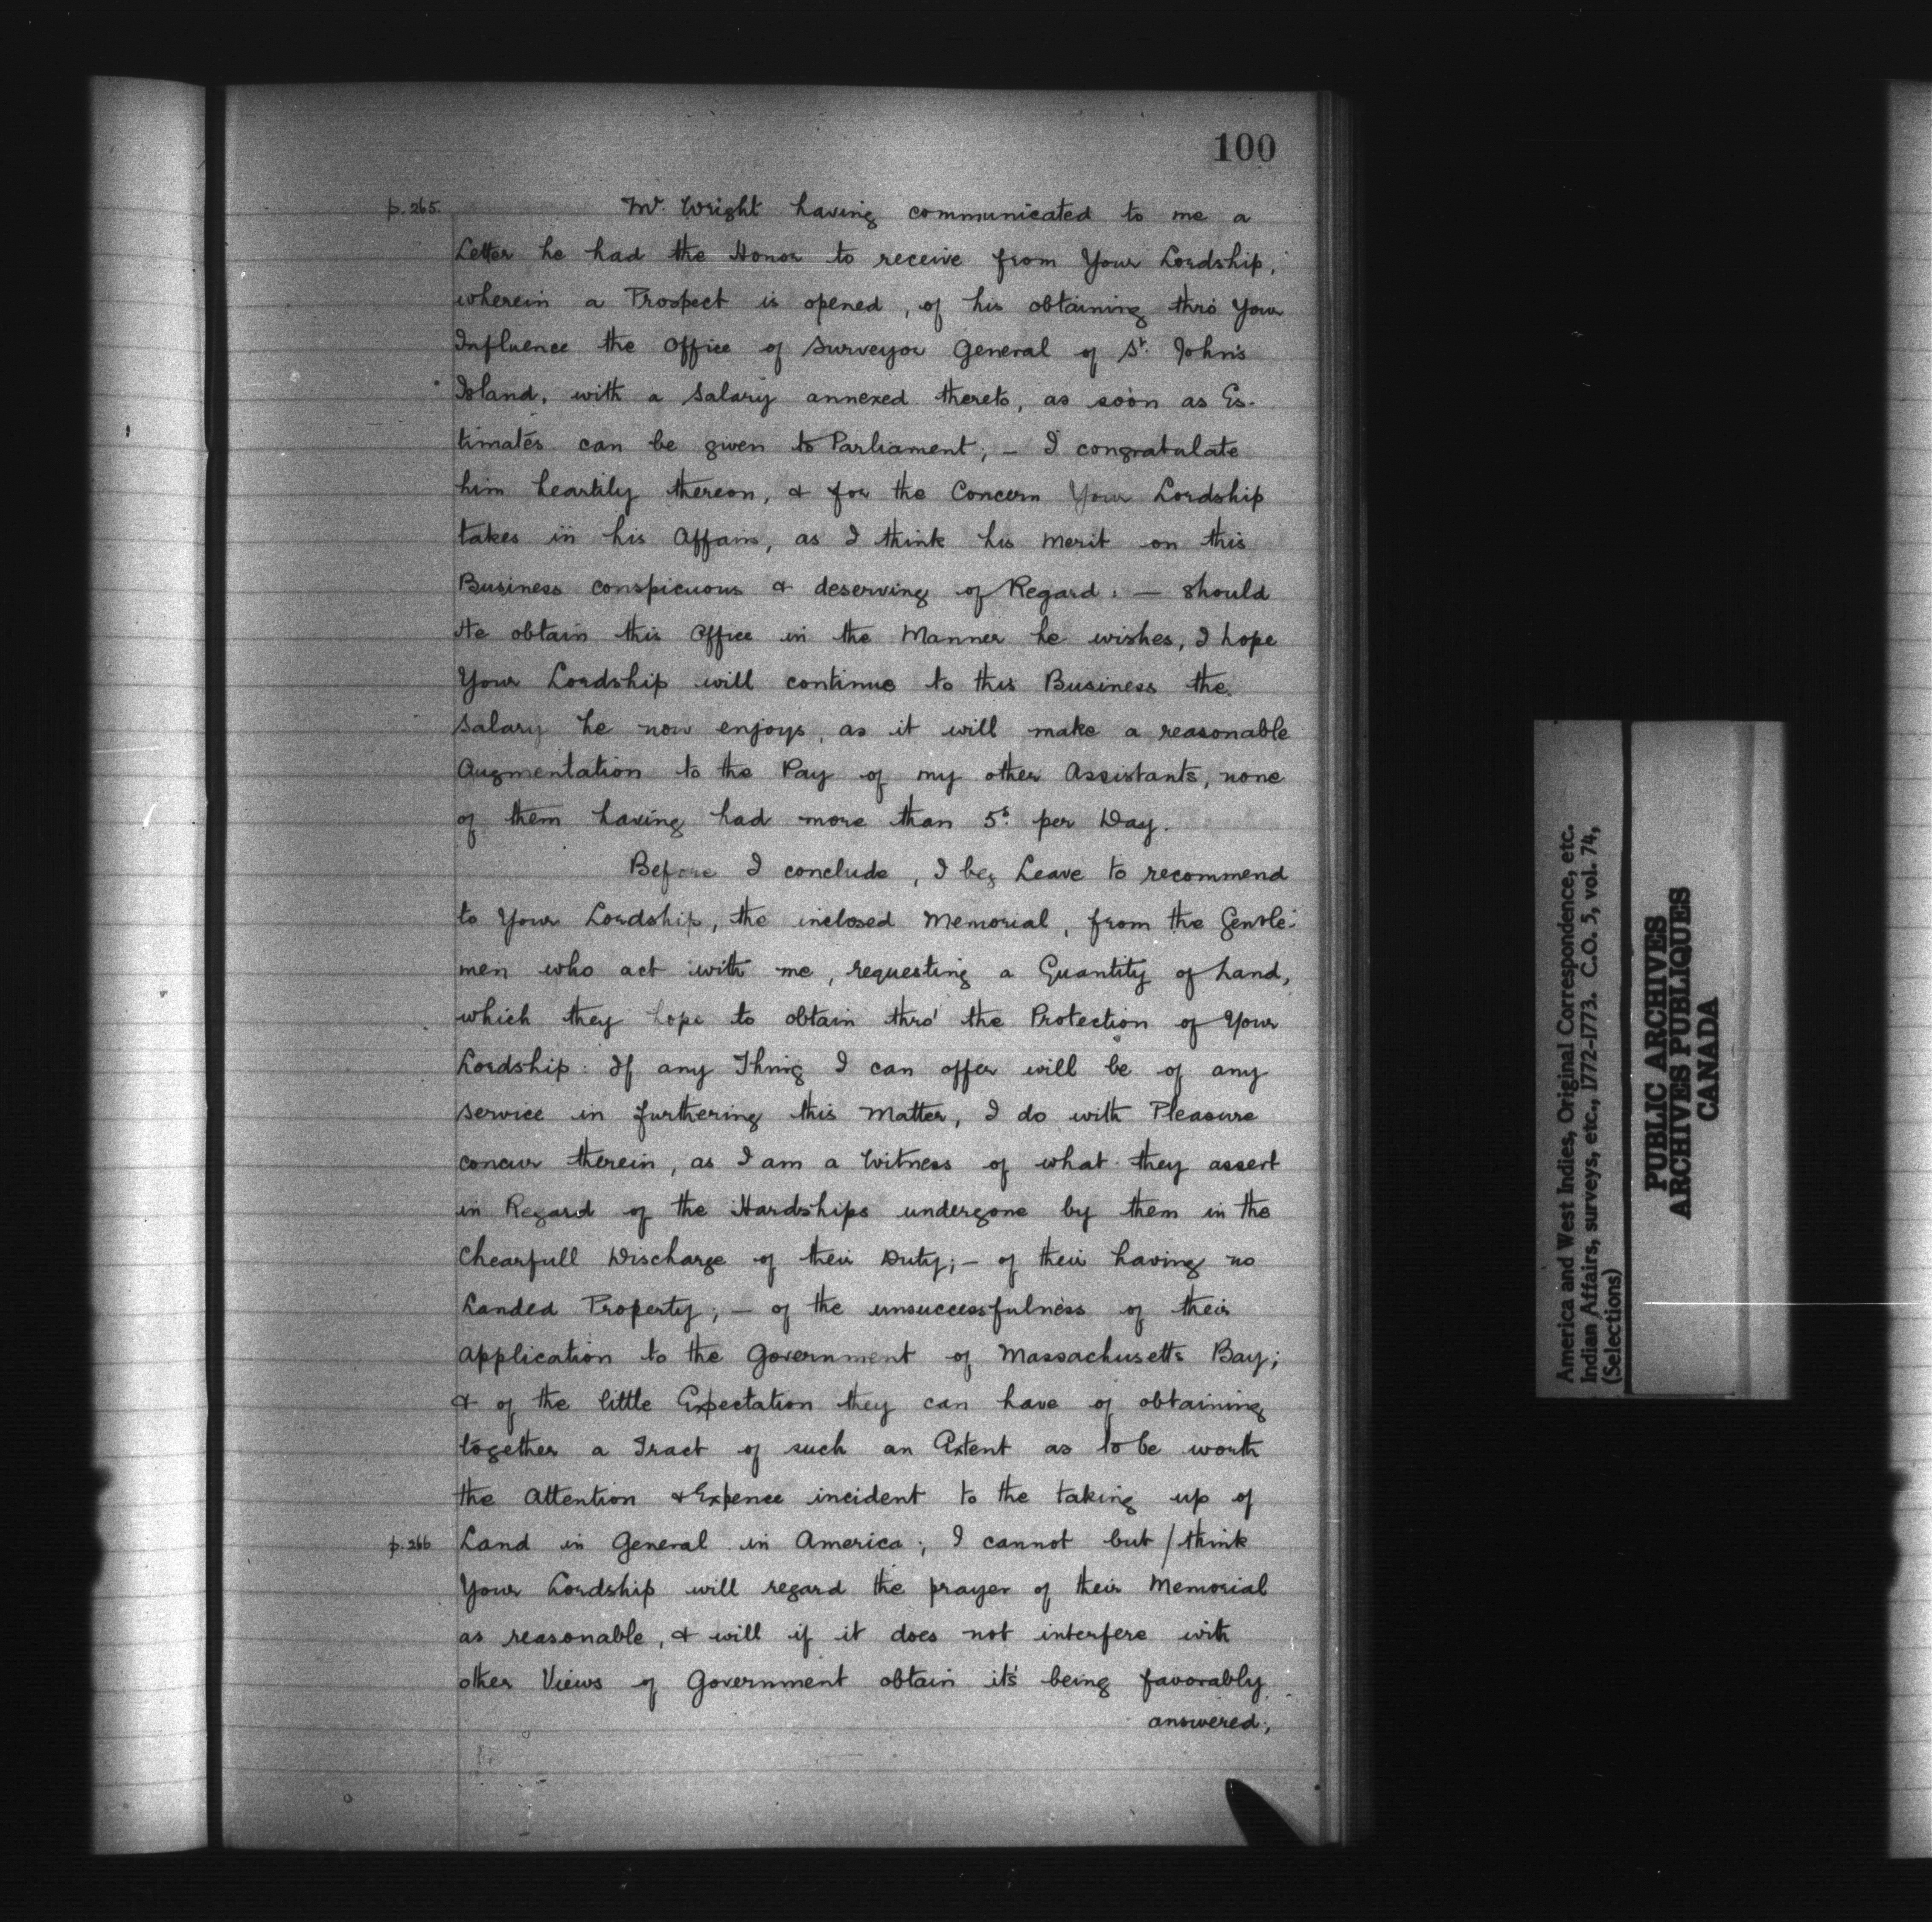 100
p. 265. Mr. Wright having communicated to me a
Letter he had the Honor to receive from Your Lordship,
wherein a Prospect is opened, of his obtaining thro' Your
Influence the Office of Surveyor General of St. John's
Island, with a Salary annexed thereto, as soon as Es-
timates can be given to Parliament; — I congratulate
him heartily thereon, & for the Concern Your Lordship
takes in his Affairs, as I think his Merit on this
Business conspicuous & deserving of Regard: — should
He obtain this Office in the Manner he wishes, I hope
Your Lordship will continue to this Business the
Salary he now enjoys, as it will make a reasonable
Augmentation to the Pay of my other Assistants, none
of them having had more than 5s. per Day.
Before I conclude, I beg Leave to recommend
to Your Lordship, the inclosed Memorial, from the Gentle-
men who act with me, requesting a Quantity of Land,
which they hope to obtain thro' the Protection of Your
Lordship: If any Thing I can offer will be of any
service in furthering this Matter, I do with Pleasure
concur therein, as I am a Witness of what they assert
in Regard of the Hardships undergone by them in the
Chearfull Discharge of their Duty; — of their having no
Landed Property; — of the unsuccessfulness of their
Application to the Government of Massachusetts Bay;
& of the little Expectation they can have of obtaining
together a Tract of such an Extent as to be worth
the Attention & Expence incident to the taking up of
p. 266 Land in General in America; I cannot but / think
Your Lordship will regard the prayer of their Memorial
as reasonable, & will if it does not interfere with
other Views of Government obtain it's being favorably
answered;
America and West Indies, Original Correspondence, etc.
Indian Affairs, surveys, etc., 1772-1773. C.O. 5, vol. 74,
(Selections)
PUBLIC ARCHIVES
ARCHIVES PUBLIQUES
CANADA